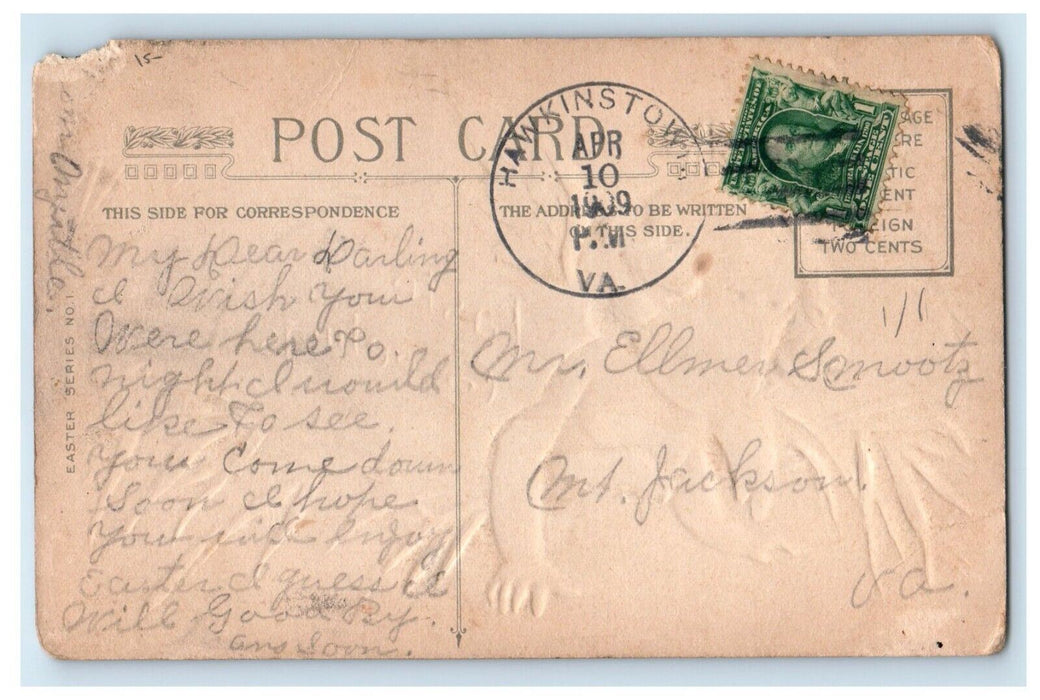 15-
POST CARD
HAWKINSTOWN
APR
10
1909
P.M
VA.
THIS SIDE FOR CORRESPONDENCE
THE ADDRESS TO BE WRITTEN
ON THIS SIDE.
FOREIGN
TWO CENTS
1/1
EASTER SERIES NO. 1
My Dear Darling
I Wish You
Were here To.
night I would
like To see.
You Come down
Soon I hope
You will Enjoy
Easter I guess I
Will Good By.
ans Soon.
Mr. Ellmer Smootz
Mt. Jackson.
Va.